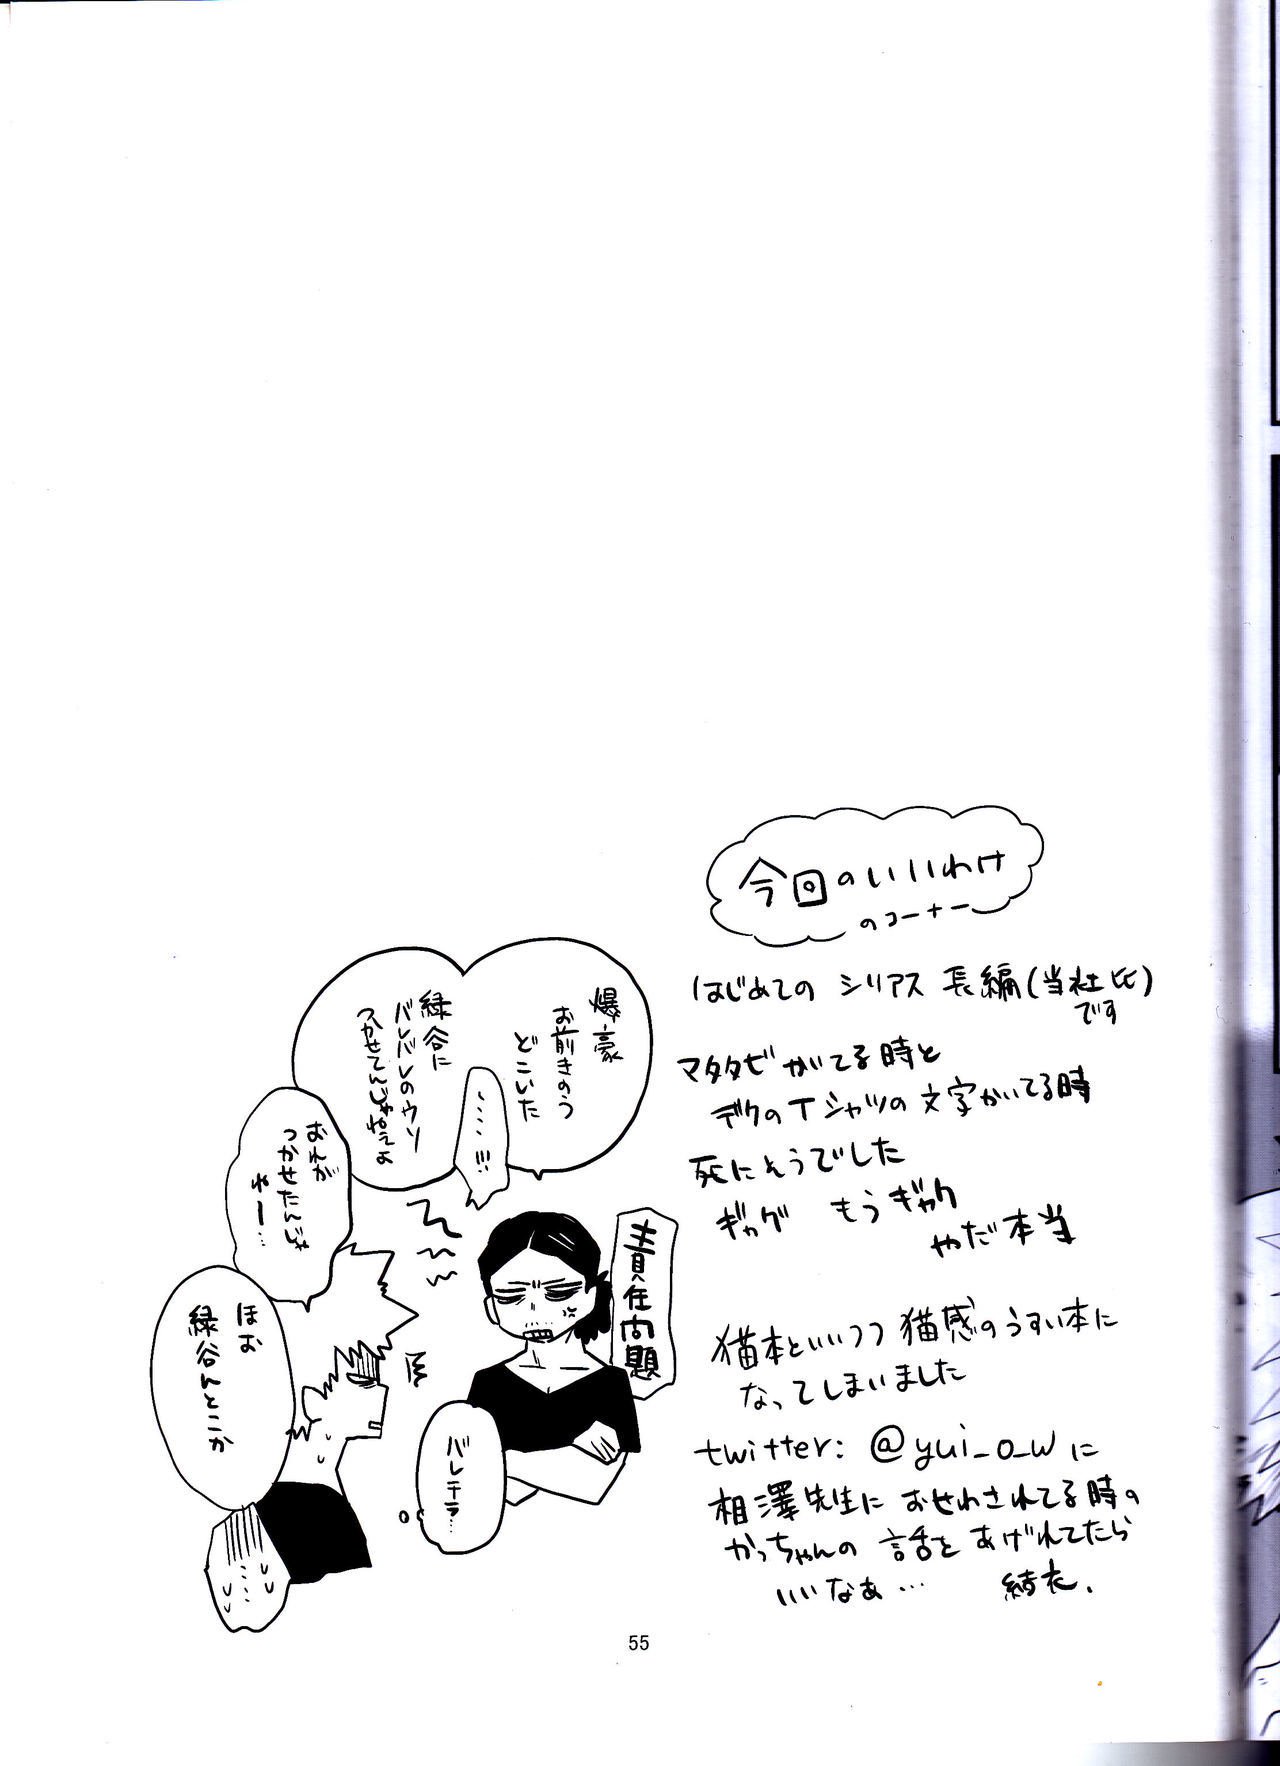 今回のいいわけ
のコーナー
はじめての シリアス 長編(当社比)
です
マタタビ がてる時と
デクのTシャツの文字かいてる時
死にそうでした
ギャグ もうギャグ
やだ本当
猫本といいつつ 猫感のうすい本に
なってしまいました
twitter: @yui_o_wに
相澤先生に おせわされてる時の
かっちゃんの 話を あげれてたら
いいなあ… 結衣.
爆豪
お前きのう
どこいた
……!!!
緑谷に
バレバレのウソ
つかせてんじゃねえよ
おれが
つかせたんじゃ
ねー…
責任問題
ほお
緑谷んとこか
バレテラ…
…
55